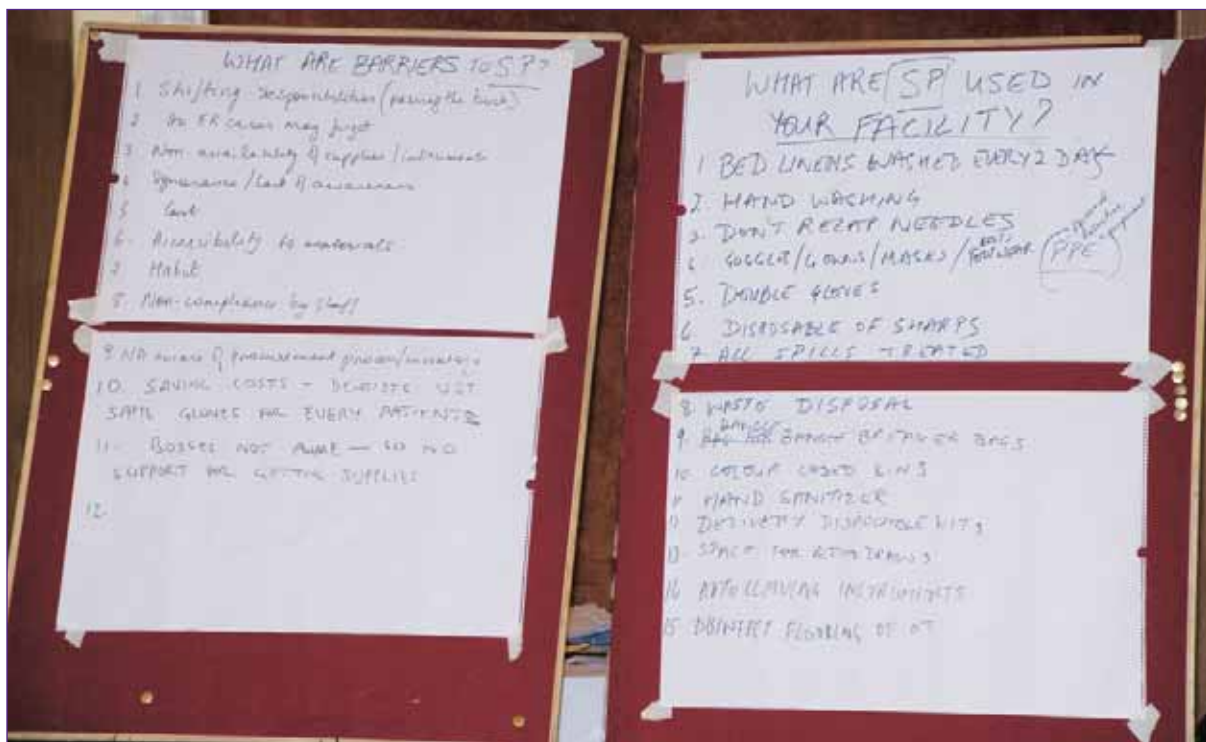 WHAT ARE BARRIERS TO SP?
1 Shifting responsibilities (passing the buck)
2 In ER cases may forget
3. Non-availability of supplies/instruments
4 Ignorance/Lack of awareness
5
6. Accessibility to materials
7 Habit
8. Non-compliance by staff
9. aware of procurement process/
10. SAVING COSTS – DENTISTS USE
SAME GLOVES FOR EVERY PATIENTS
11. BOSSES NOT AWARE — SO NO
SUPPORT FOR GETTING SUPPLIES
12.
WHAT ARE SP USED IN
YOUR FACILITY?
1 BED LINENS WASHED EVERY 2 DAYS
2. HAND WASHING
3. DON'T RECAP NEEDLES
4 GOGGLES/GOWNS/MASKS/ FOOTWEAR
PPE
5. DOUBLE GLOVES
6. DISPOSABLE OF SHARPS
7. ALL SPILLS TREATED
8. WASTE DISPOSAL
9. BAGS
10. COLOUR CODED BINS
11 HAND SANITIZER
DELIVERY DISPOSABLE KITS
13. SPACE FOR
14 AUTOCLAVING INSTRUMENTS
15 DISINFECT FLOORING OF OT